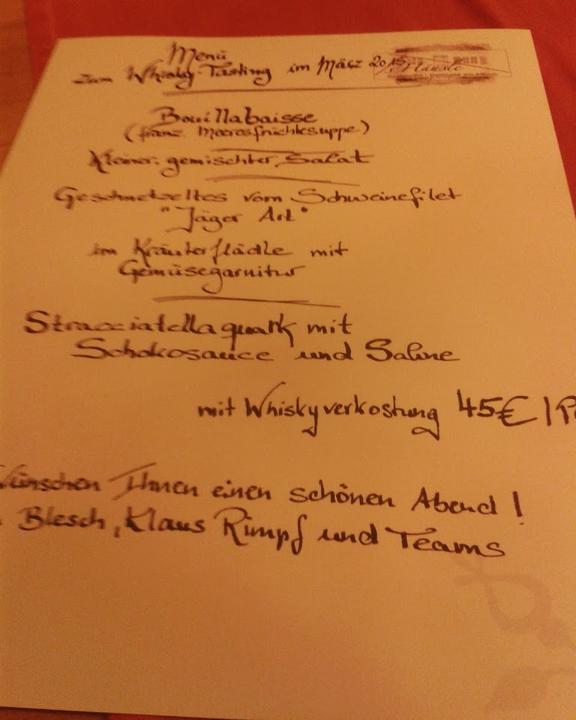 Menü
zum Whisky-Tasting im März 2015
Häusle
Bouillabaisse
(franz. Meeresfrüchtesuppe)
Kleiner gemischter Salat
Geschnetzeltes vom Schweinefilet
"Jäger Art"
im Kräuterflädle mit
Gemüsegarnitur
Stracciatellaquark mit
Schokosauce und Sahne
mit Whiskyverkostung 45€ | P
Wünschen Ihnen einen schönen Abend!
Blesch, Klaus Rimpf und Teams